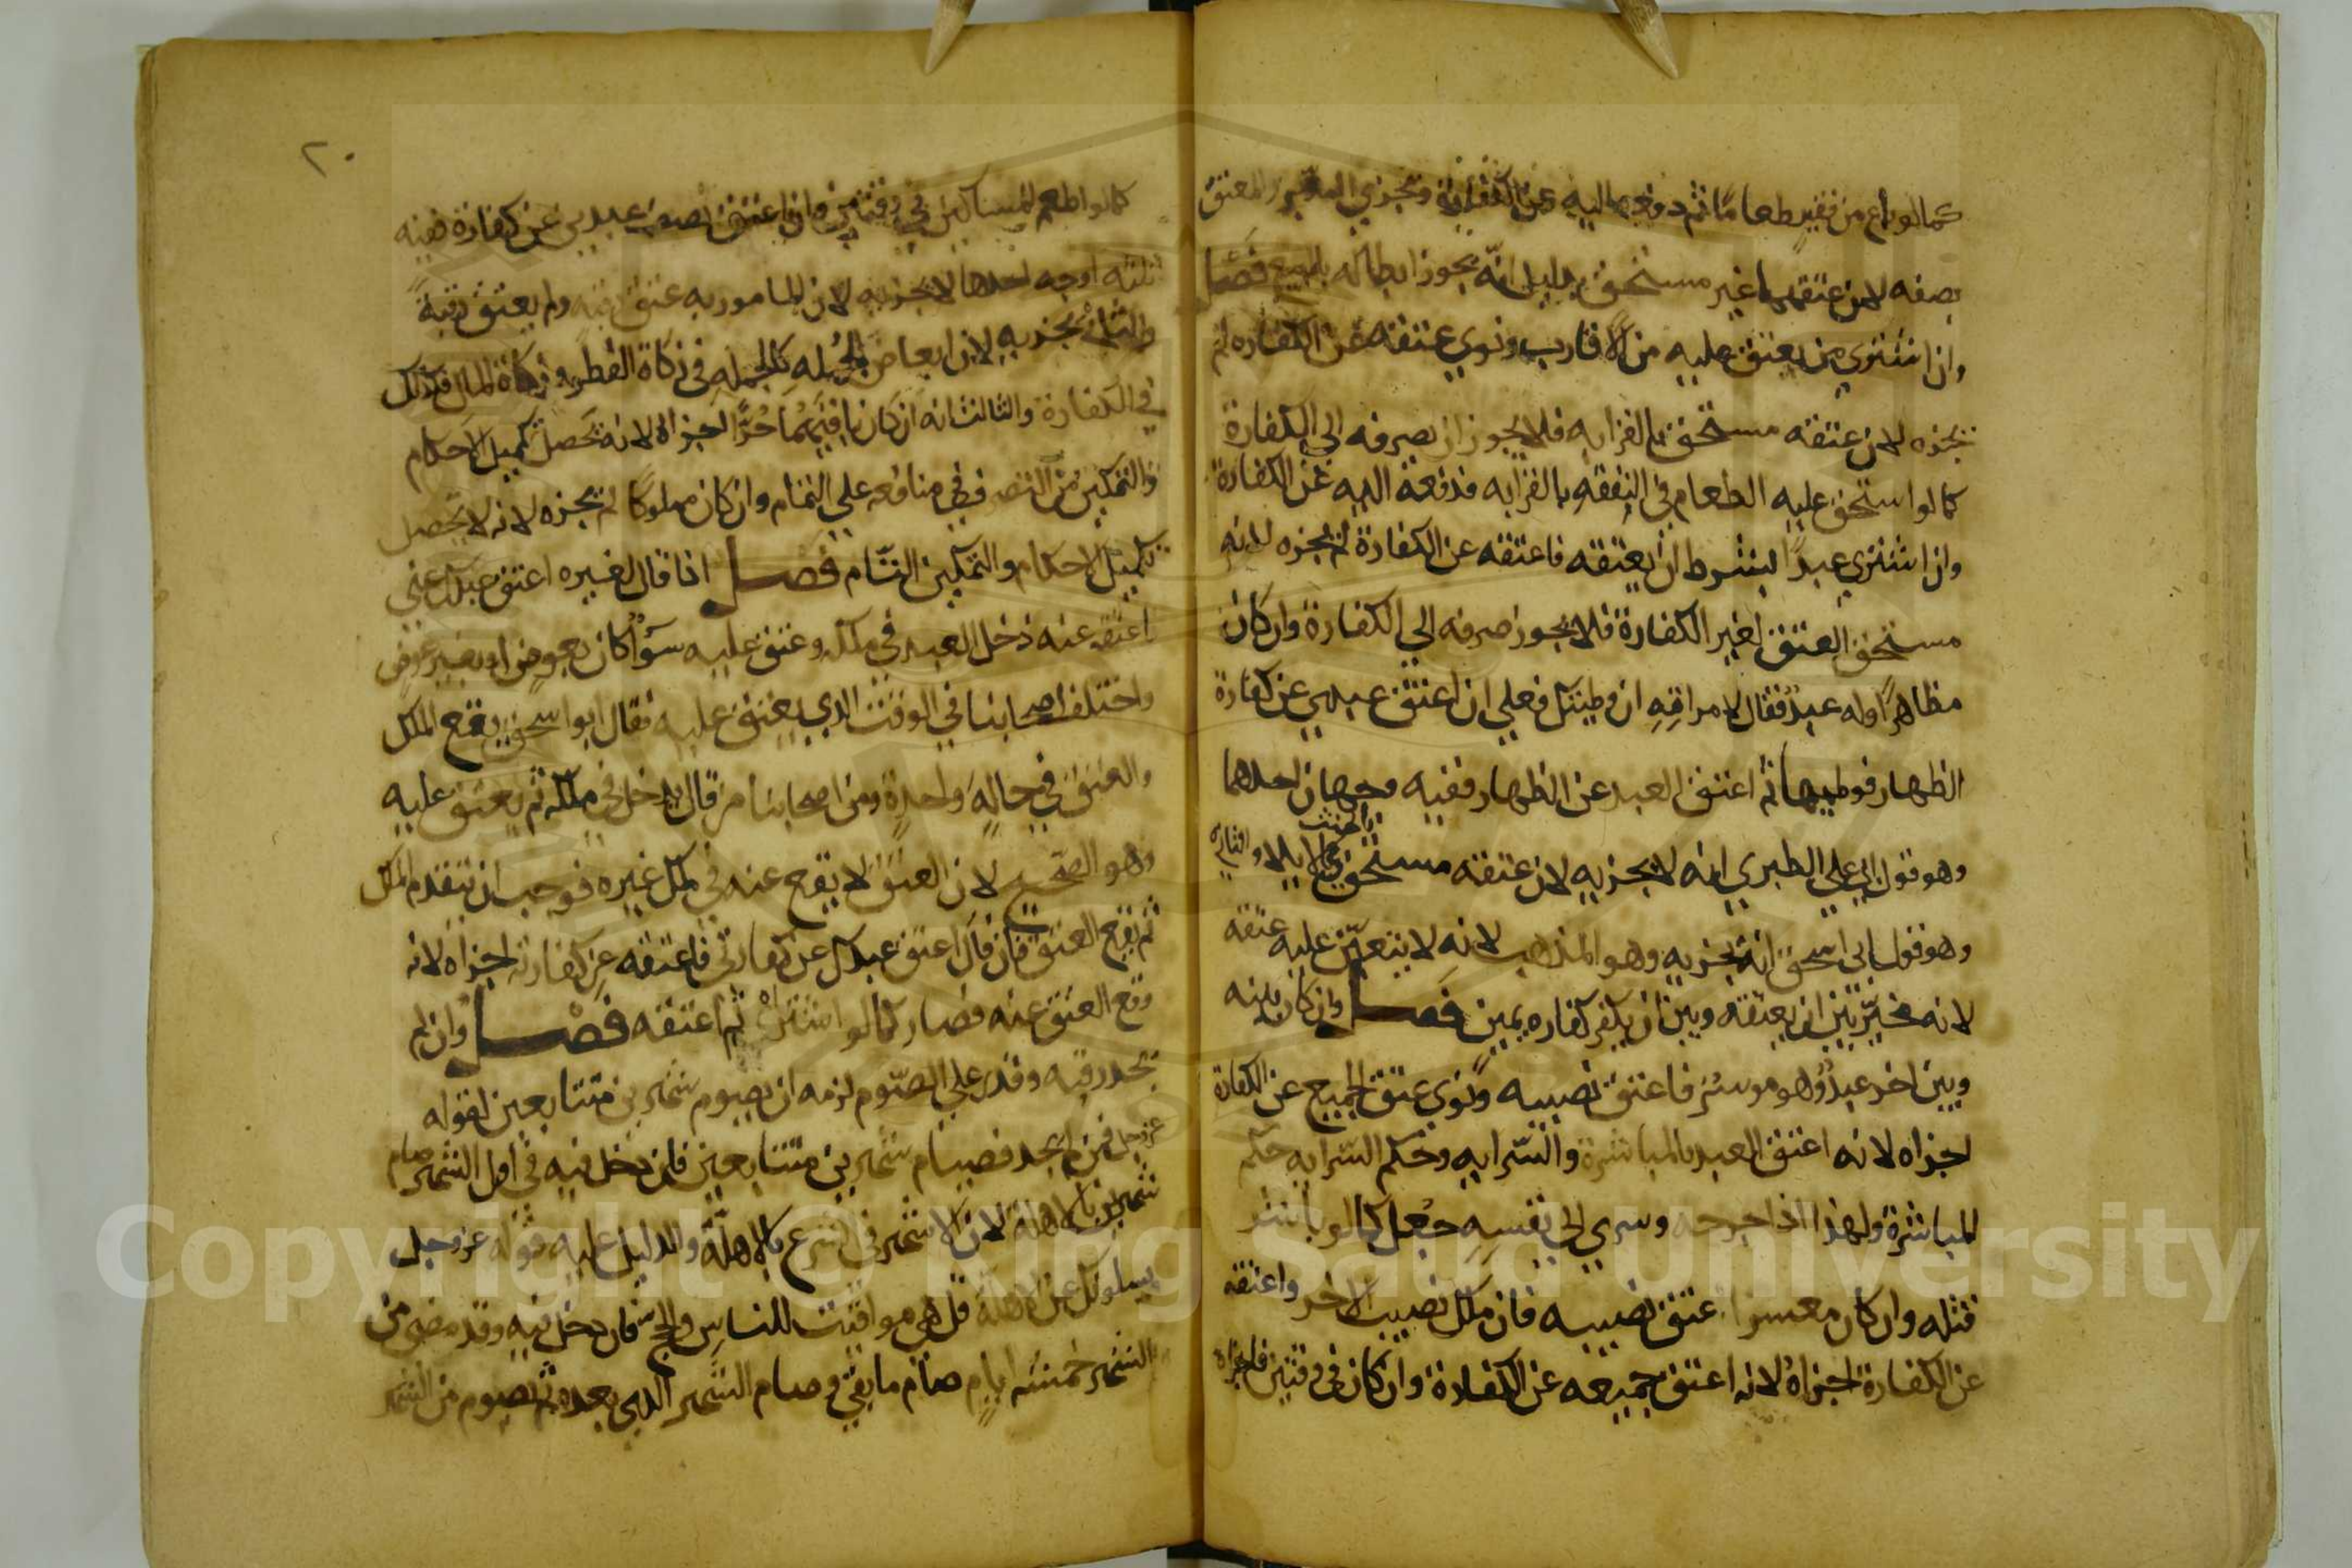 كمالو باع من فقير طعاما ثم دفعه اليه عن الكفارة ويجزي المدبر والمعتق
بصفه لان عتقهما غير مستحق بدليل انه يجوز ابطاله بالبيع فصل
وان اشتري من يعتق عليه من الاقارب ونوي عتقه عن الكفاره لم
يجزه لان عتقه مستحق بالقرابه فلا يجوز ان يصرفه الي الكفارة
كما لو استحق عليه الطعام في النفقه بالقرابه فدفعه اليه عن الكفارة
وان اشتري عبدا بشرط ان يعتقه فاعتقه عن الكفارة لم يجزه لانه
مستحق العتق لغير الكفارة فلا يجوز صرفه الي الكفارة وان كان
مظاهرا وله عبد فقال لامراته ان وطيتك فعلي ان اعتق عبدي عن كفارة
الظهار فوطيها ثم اعتق العبد عن الظهار ففيه وجهان احدهما
وهو قول ابي علي الطبري انه لا يجزيه لان عتقه مستحق بالحنث في الايلا والثاني
وهو قول ابي اسحق انه يجزيه وهو المذهب لانه لا يتعين عليه عتقه
لانه مخير بين ان يعتقه وبين ان يكفر كفاره يمين فصل وان كان بينه
وبين اخر عبد وهو موسر فاعتق نصيبه ونوي عتق الجميع عن الكفارة
اجزاه لانه اعتق العبد بالمباشرة والسرايه وحكم السرايه حكم
المباشرة ولهذا اذا جرحه وسري الي نفسه جعل كما لو باشر
قتله وان كان معسرا عتق نصيبه فان ملك نصيب الاخر واعتقه
عن الكفارة اجزاه لانه اعتق جميعه عن الكفارة وان كان في وقتين فاجزاه
٢٠
كما لو اطعم المساكين في وقتين وان اعتق نصف عبدين عن كفارة ففيه
ثلثه اوجه احدها لا يجزيه لان المامور به عتق رقبه ولم يعتق رقبة
والثاني يجزيه لان ابعاض الجمله كالجمله في زكاة الفطر وزكاة المال فكذلك
في الكفارة والثالث انه ان كان باقيهما حرا اجزاه لانه يحصل تكميل الاحكام
والتمكين من التصرف في منافعه علي التمام وان كان مملوكا لم يجزه لانه لا يحصل
تكميل الاحكام والتمكين التام فصل اذا قال لغيره اعتق عبدك عني
اعتقه عنه دخل العبد في ملكه وعتق عليه سوا كان بعوض او بغير عوض
واختلف اصحابنا في الوقت الذي يعتق عليه فقال ابو اسحق يقع الملك
والعتق في حاله واحدة ومن اصحابنا من قال يدخل في ملكه ثم يعتق عليه
وهو الصحيح لان العتق لا يقع عنه في ملك غيره فوجب ان يتقدم الملك
ثم يقع العتق فان قال اعتق عبدك عن كفارتي فاعتقه عن كفارته اجزاه لانه
وقع العتق عنه فصار كما لو اشتراه ثم اعتقه فصل وان لم
يجد رقبه وقدر علي الصوم لزمه ان يصوم شهرين متتابعين لقوله
عز وجل فمن لم يجد فصيام شهرين متتابعين فان دخل فيه في اول الشهر صام
شهرين بالاهلة لان الاشهر في الشرع بالاهلة والدليل عليه قوله عز وجل
يسلونك عن الاهلة قل هي مواقيت للناس والحج فان دخل فيه وقد مضي من
الشهر خمسه ايام صام ما بقي وصام الشهر الذي بعده ثم يصوم من الشهر